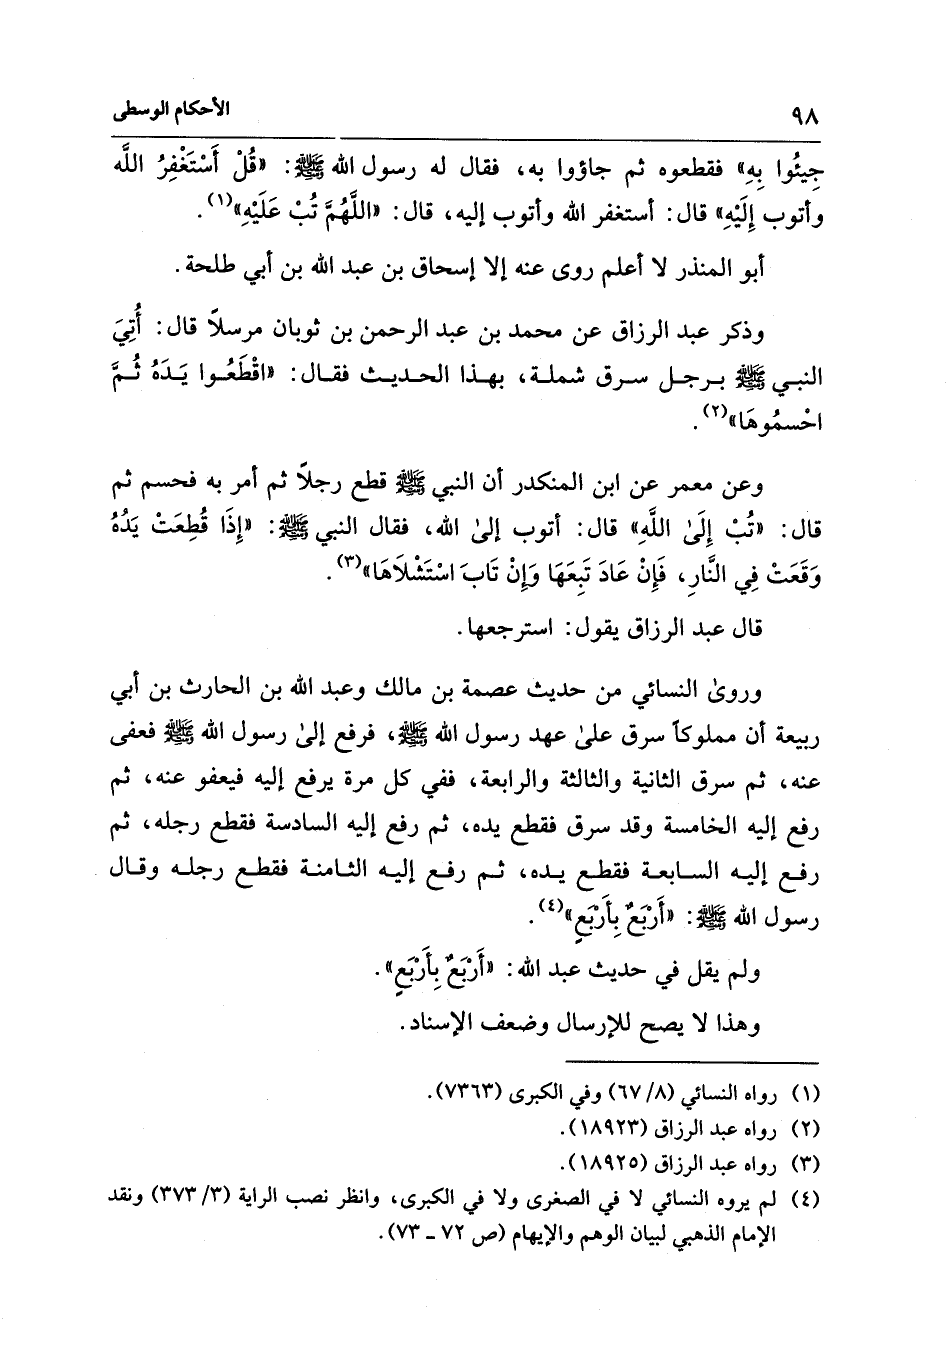 ٩٨
الأحكام الوسطى
جِيئُوا بِهِ» فقطعوه ثم جاؤوا به، فقال له رسول الله ﷺ: «قُلْ أَسْتَغْفِرُ اللَّه
وأتوب إِلَيْهِ» قال: أستغفر الله وأتوب إليه، قال: «اللَّهُمَّ تُبْ عَلَيْهِ»(١).
أبو المنذر لا أعلم روى عنه إلا إسحاق بن عبد الله بن أبي طلحة.
وذكر عبد الرزاق عن محمد بن عبد الرحمن بن ثوبان مرسلاً قال: أُتِيَ
النبي ﷺ برجل سرق شملة، بهذا الحديث فقال: «اقْطَعُوا يَدَهُ ثُمَّ
احْسمُوهَا»(٢).
وعن معمر عن ابن المنكدر أن النبي ﷺ قطع رجلاً ثم أمر به فحسم ثم
قال: «تُبْ إِلَىٰ اللَّهِ» قال: أتوب إلىٰ الله، فقال النبي ﷺ: «إِذَا قُطِعَتْ يَدُهُ
وَقَعَتْ فِي النَّارِ، فَإِنْ عَادَ تَبِعَهَا وَإِنْ تَابَ اسْتَشْلَاهَا»(٣).
قال عبد الرزاق يقول: استرجعها.
وروىٰ النسائي من حديث عصمة بن مالك وعبد الله بن الحارث بن أبي
ربيعة أن مملوكاً سرق علىٰ عهد رسول الله ﷺ، فرفع إلىٰ رسول الله ﷺ فعفى
عنه، ثم سرق الثانية والثالثة والرابعة، ففي كل مرة يرفع إليه فيعفو عنه، ثم
رفع إليه الخامسة وقد سرق فقطع يده، ثم رفع إليه السادسة فقطع رجله، ثم
رفع إليه السابعة فقطع يده، ثم رفع إليه الثامنة فقطع رجله وقال
رسول الله ﷺ: «أَرْبَعٌ بِأَرْبَعٍ»(٤).
ولم يقل في حديث عبد الله: «أَرْبَعٌ بِأَرْبَعٍ».
وهذا لا يصح للإرسال وضعف الإسناد.
(١) رواه النسائي (٨/ ٦٧) وفي الكبرى (٧٣٦٣).
(٢) رواه عبد الرزاق (١٨٩٢٣).
(٣) رواه عبد الرزاق (١٨٩٢٥).
(٤) لم يروه النسائي لا في الصغرى ولا في الكبرى، وانظر نصب الراية (٣/ ٣٧٣) ونقد
الإمام الذهبي لبيان الوهم والإيهام (ص ٧٢ ـ ٧٣).